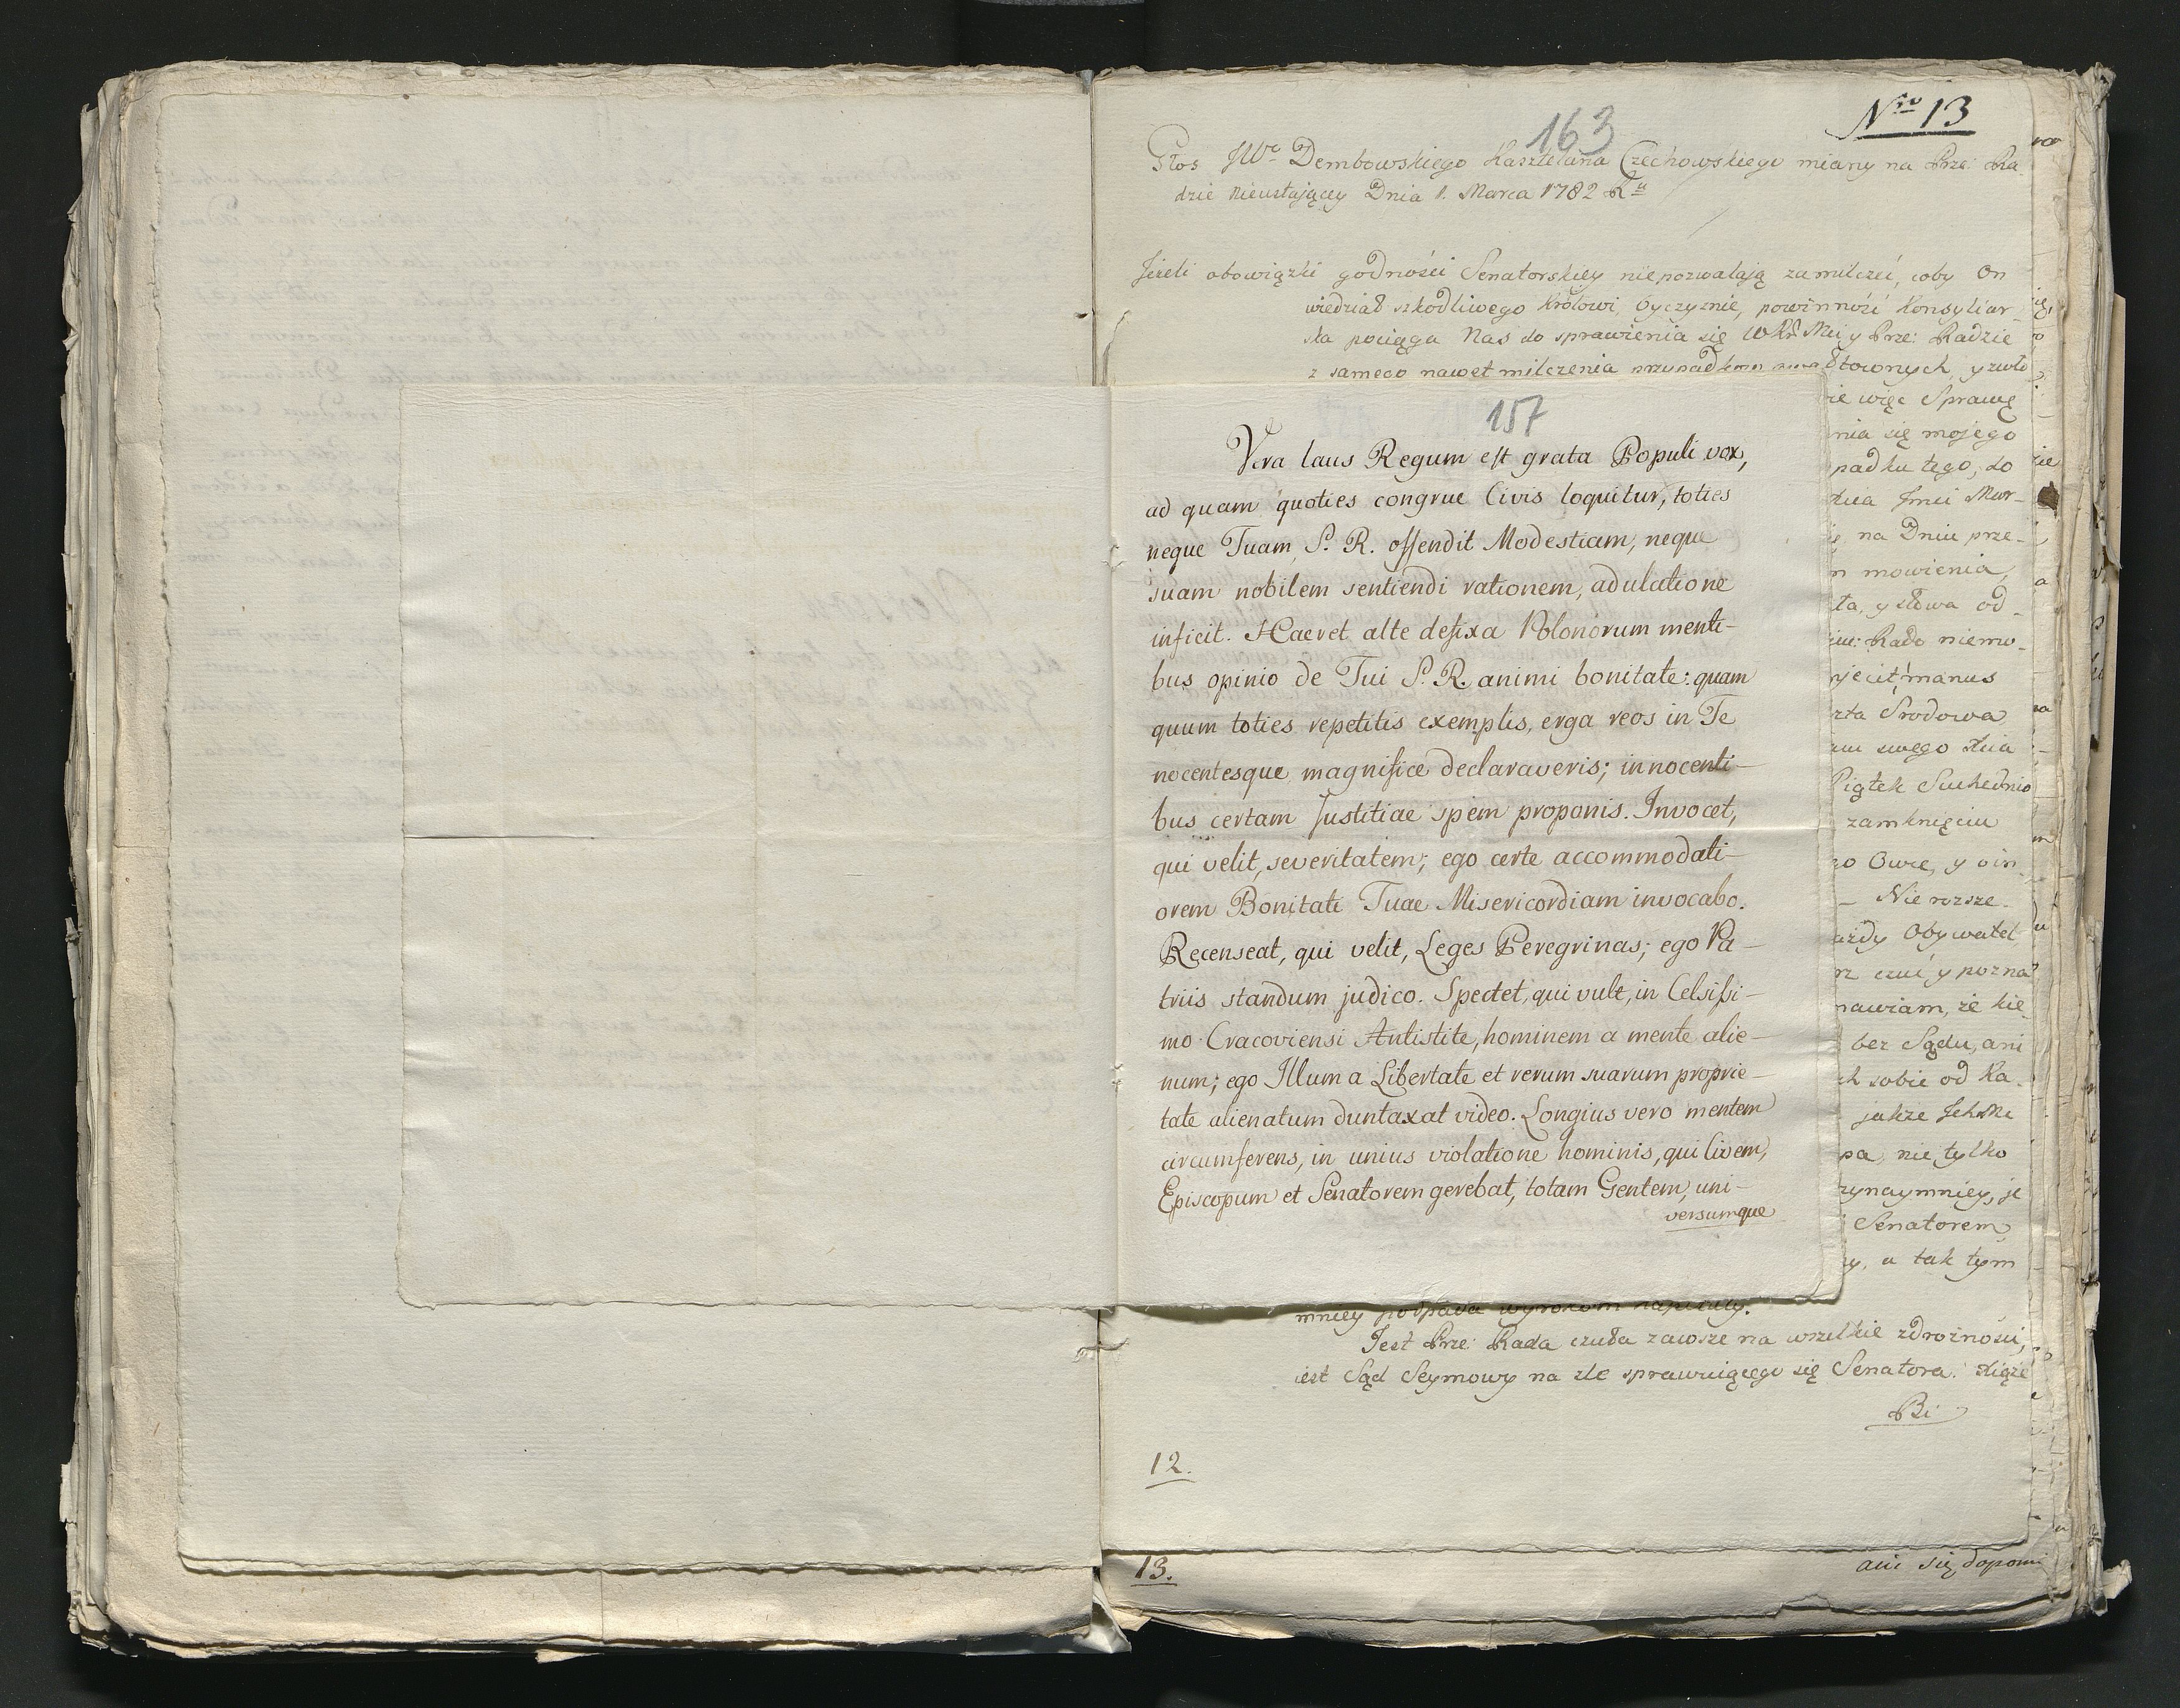 163
Nro 13
Głos JWo Dembowskiego Kasztelana Czechowskiego miany na Prze: Ra
dzie Nieustającey Dnia 1. Marca 1782 Ru
Jeżeli obowiązki godności Senatorskiey niepozwalają zamilczeć, coby On
wiedział szkodliwego Królowi, Oyczyznie, powinność Konsyliar-
ska pociąga Nas do sprawienia się WKr Mci y Prze: Radzie
z samego nawet milczenia
157
Vera laus Regum est grata Populi vox,
ad quam quoties congrue Civis loquitur, toties
neque Tuam, S. R. offendit Modestiam, neque
suam nobilem sentiendi rationem, adulatione
inficit. Haeret alte defixa Polonorum menti-
bus opinio de Tui S. R. animi bonitate: quam
quum toties repetitis exemplis, erga reos in Te
nocentesque magnifice declaraveris; innocenti-
bus certam Justitiae spem proponis. Invocet,
qui velit, severitatem; ego certe accommodati-
orem Bonitati Tuae Misericordiam invocabo.
Recenseat, qui velit, Leges Peregrinas; ego Pa-
triis standum judico. Spectet, qui vult, in Celsissi-
mo Cracoviensi Antistite, hominem a mente alie-
num; ego Illum a Libertate et rerum suarum proprie-
tate alienatum duntaxat video. Longius vero mentem
circumferens, in unius violatione hominis, qui Civem,
Episcopum et Senatorem gerebat, totam Gentem, uni-
versumque
więc Sprawę
się mojego
padku tego, do
na Dniu prze-
mowienia,
y słowa od-
manus
Srodowa
swego
Piątek Suchednio
zamknięciu
Owce, y
Nie rozsze-
Obywatel
czuć y pozna
że
bez Sądu, ani
sobie od Ka-
nie tylko
Senatorem
a tak tym
mniey podpada wyrokom
Jest Prze: Rada czuła zawsze na wszelkie zdrożności,
iest Sąd Seymowy na źle sprawuiącego się Senatora. Xiąże
Bi
12.
13.
ani się dopomi